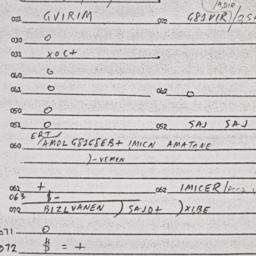 021 GVIRIM 022 G81VIR/
030 0
031 XOCT
040 0
041 0 042 0
050 0
051 0 052 SAJ SAJ
ERT
060 AMOL G8168EB+ IMICN AMATANE
)-VEMEN
061 + 062 IMICER/
063 $-
070 BIZLVANEN ) SAJD+ )XIBE
071 0
072 $ = +